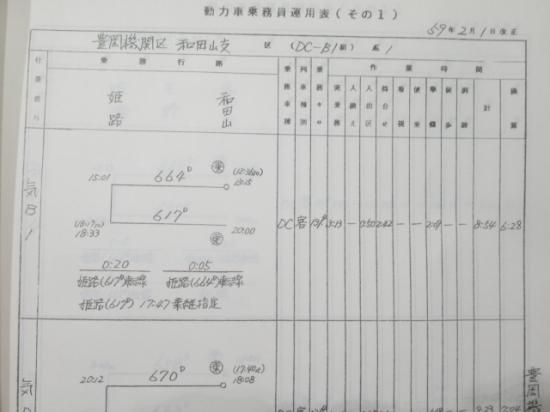 動力車乗務員運用表(その1)
59年2月1日改正
豊岡機関区 和田山支 区 (DC-B1組) 系 1
行路番号 乗務行路 乗務車種 列車種別 乗務キロ 作業時間 実乗務 入換え 入出区 待合せ 看視 便乗 準備 徒歩 訓練 計 換算
姫路 和田山
気B1
15:01 664D (12:56出) 13:15
617D
(18:17出) 18:33 20:00
DC 客 5:13 — 0:50 2:42 — — — — 8:54 6:28
0:20 0:05
姫路(617D)転線 姫路(664D)転線
姫路(617D) 17:47乗継指定
20:12 670D (17:40出) 18:08
豊岡機